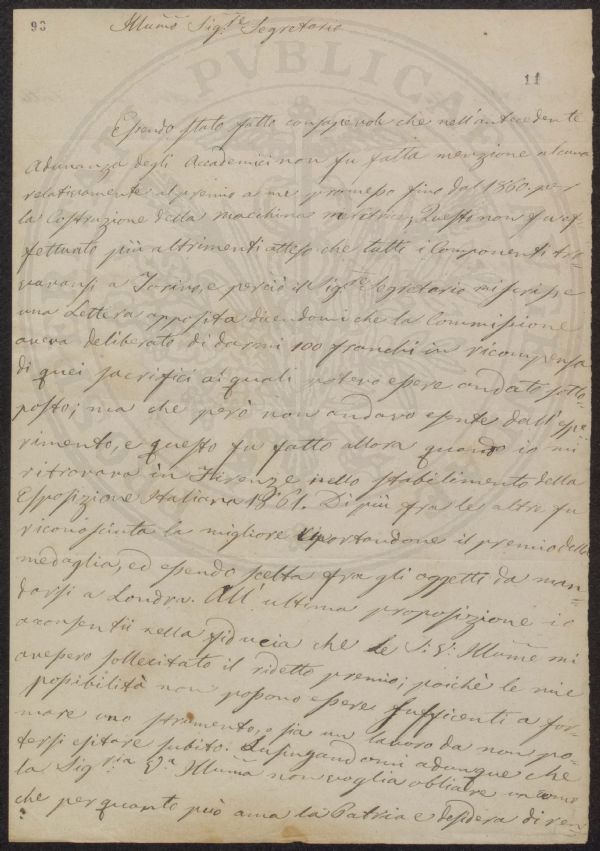 93
Illumo Sigre Segretario
11
Essendo stato fatto consapevole che nell'antecedente
Adunanza degli Accademici non fu fatta menzione alcuna
relativamente al premio a me promesso fino dal 1860. per
la Costruzione della macchina Questi non fu ef-
fettuato più altrimenti atteso che tutti i Componenti tro-
vavansi a Torino, e perciò il Sigre Segretario mi scrisse
una Lettera apposita dicendomi che la Commissione
aveva deliberato di darmi 100 franchi in ricompensa
di quei sacrifici ai quali potevo essere andato sotto-
posto; ma che però non andavo esente dall'espe-
rimento, e questo fu fatto allora quando io mi
ritrovava in Firenze nello stabilimento della
Esposizione Italiana 1861. Di più fra le altre fu
riconosciuta la migliore riportandone il premio della
medaglia, ed essendo scelta fra gli oggetti da man-
darsi a Londra. All'ultima proposizione io
acconsentii nella fiducia che le S. V. Illume mi
avessero sollecitato il ridetto premio; poichè le mie
possibilità non possono essere sufficenti a for-
mare uno strumento, o sia un lavoro da non po-
tersi esitare subito. Lusingandomi adunque che
la Sigria Va Illuma non voglia obliare un uomo
che per quanto può ama la Patria e desidera di ren-